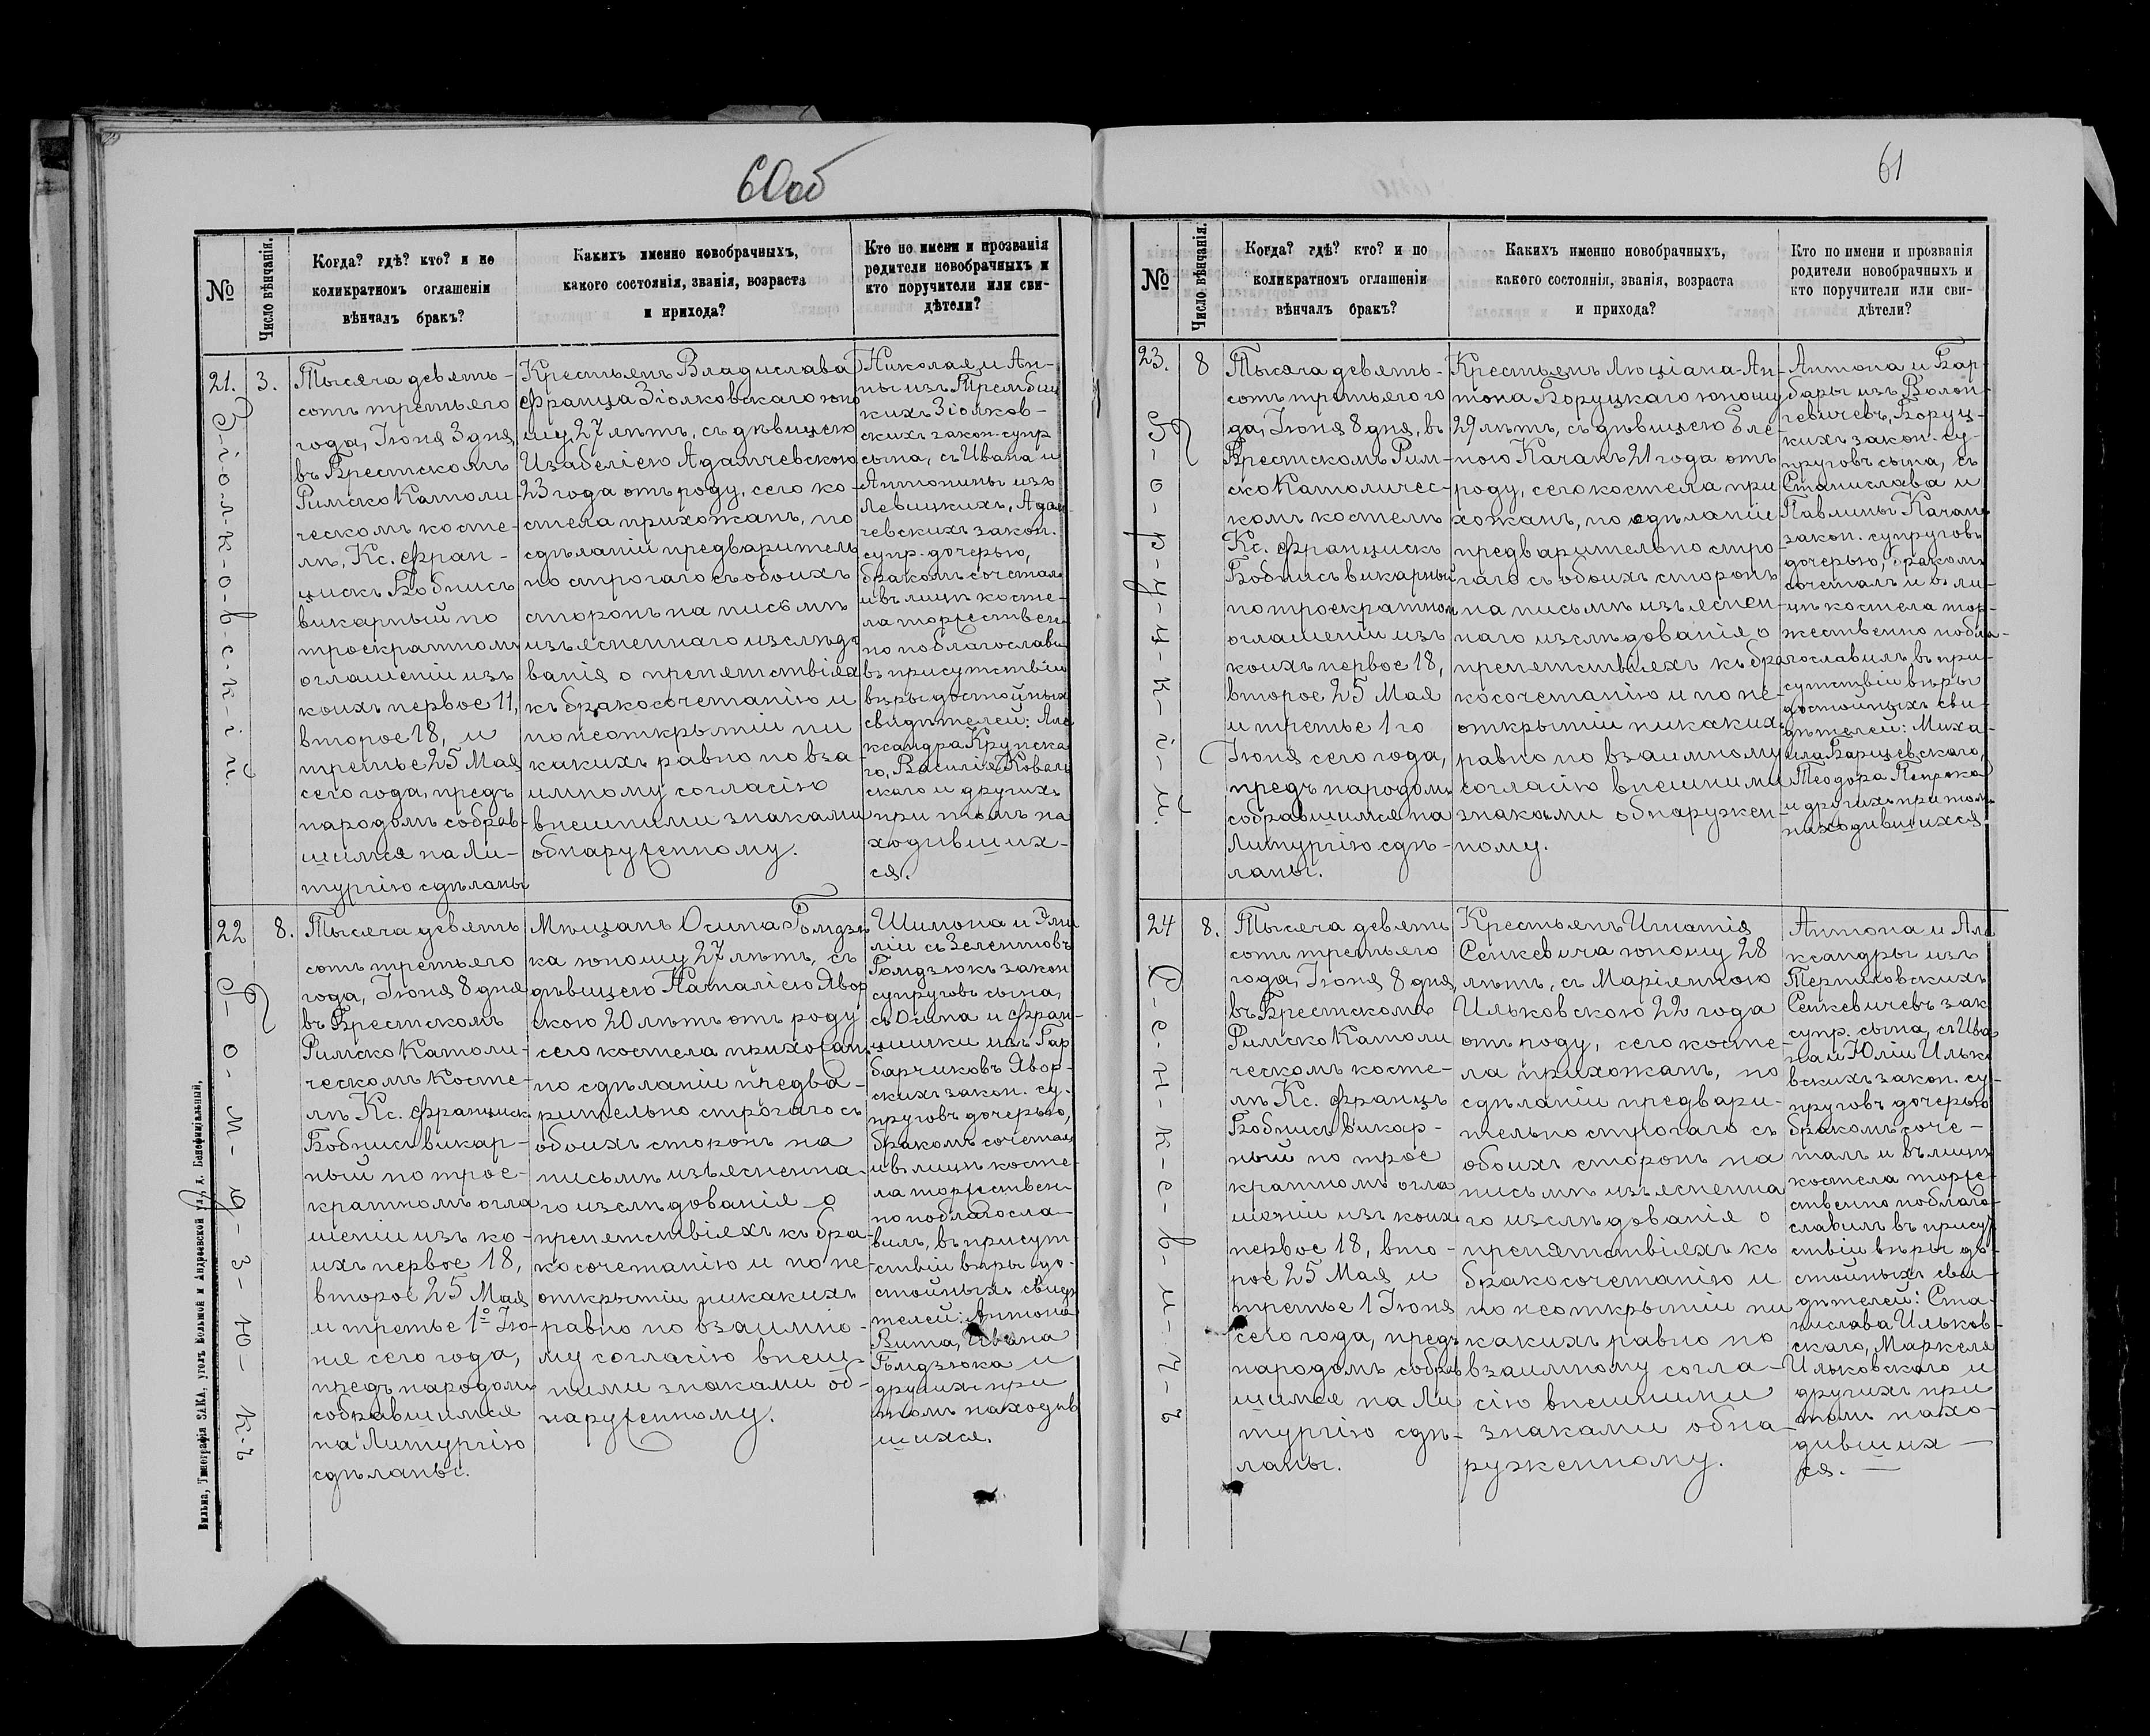 60об
№
Число вѣнчанія.
Когда? гдѣ? кто? и по
коликратномъ оглашеніи
вѣнчалъ бракъ?
Какихъ именно новобрачныхъ,
какого состоянія, званія, возраста
и прихода?
Кто по имени и прозванія
родители новобрачныхъ и
кто поручители или сви-
дѣтели?
21.
З-і-о-л-к-о-в-с-к-і-й.
3.
Тысяча девять-
сотъ третьяго
года, Іюня 3 дня,
въ Брестскомъ
Римско Католи
ческомъ косте-
лѣ, Кс. Фран-
цискъ Бобнисъ
викарный по
троекратномъ
оглашеніи изъ
коихъ первое 11,
второе 18, и
третье 25 Мая
сего года, предъ
народомъ собрав-
шимся на Ли-
тургію сдѣланы
Крестьянъ Владислава
Франца Зіолковскаго юно
шу 27 лѣтъ, съ дѣвицею
Изабеліею Адамчевскою
23 года отъ роду, сего ко-
стела прихожанъ, по
сдѣланіи предваритель
но строгаго съ обоихъ
сторонъ на письмѣ
изъясненнаго изслѣдо
ванія о препятствіях
къ бракосочетанію и
по неоткрытіи ни
какихъ равно по вза-
имному согласію
внешними знаками
обнаруженному.
Николая и Ан-
ны изъ Трембиц
кихъ Зіолков-
скихъ закон. супр
сына, съ Ивана и
Антонины изъ
Левицкихъ, Адам
чевскихъ закон.
супр. дочерью,
бракомъ сочетал
и въ лицѣ косте-
ла торжествен-
но поблагослави
въ присутствіи
вѣры достойныхъ
свидѣтелей: Але
ксандра Крупска
го, Василія Коваль
скаго и другихъ
при томъ на
ходивших-
ся.
22
Г-о-м-д-з-ю-к-ъ
8.
Тысяча девять
сотъ третьяго
года, Іюня 8 дня
въ Брестскомъ
Римско Католи-
ческомъ Косте-
лѣ Кс. Францискъ
Бобнисъ викар-
ный по трое-
кратномъ огла
шеніи изъ ко-
ихъ первое 18,
второе 25 Мая
и третье 1º Ію-
ня сего года,
предъ народомъ
собравшимся
на Литургію
сдѣланы.
Мѣщанъ Осипа Гомдзю
ка юношу 27 лѣтъ, съ
дѣвицею Наталіею Явор
скою 20 лѣтъ отъ роду
сего костела прихожан
по сдѣланіи предва-
рительно строгаго съ
обоихъ сторонъ на
письмѣ изъясненна-
го изслѣдованія о
препятствіяхъ къ бра-
косочетанію и по не-
открытіи никакихъ
равно по взаимно-
му согласію внеш-
ними знаками об-
наруженному.
Шимона и Эми
ліи съ Зелентовъ
Гомдзюкъ закон
супруговъ сына,
съ Осипа и Фран-
цишки изъ Гар
барчиковъ Явор-
скихъ закон. су-
пруговъ дочерью,
бракомъ сочетал
и въ лицѣ косте-
ла торжествен-
но поблагосла-
вилъ, въ присут-
ствіи вѣры до-
стойныхъ свидѣ
телей: Антона
Вита, Ивана
Гомдзюка и
другихъ при
томъ находив
шихся.
Вильна, Типографія ЗАКА, уголъ Большой и Андреевской ул., д. Бенефиціальный.
61
№
Число вѣнчанія.
Когда? гдѣ? кто? и по
коликратномъ оглашеніи
вѣнчалъ бракъ?
Какихъ именно новобрачныхъ,
какого состоянія, званія, возраста
и прихода?
Кто по имени и прозванія
родители новобрачныхъ и
кто поручители или сви-
дѣтели?
23.
Б-о-р-у-ц-к-і-й.
8
Тысяча девять-
сотъ третьяго го
да, Іюня 8 дня, въ
Брестскомъ Рим-
ско Католичес-
комъ костелѣ
Кс. Францискъ
Бобнисъ викарный
по троекратном
оглашеніи изъ
коихъ первое 18,
второе 25 Мая
и третье 1 го
Іюня сего года,
предъ народомъ
собравшимся на
Литургію сдѣ-
ланы.
Крестьянъ Люціана-Ан-
тона Боруцкаго юношу
29 лѣтъ, съ дѣвицею Еле-
ною Качанъ 21 года отъ
роду, сего костела при
хожанъ, по сдѣланіи
предварительно стро-
гаго съ обоихъ сторонъ
на письмѣ изъяснен-
наго изслѣдованія о
препятствіяхъ къ бра
косочетанію и по не-
открытіи никакихъ
равно по взаимному
согласію внешними
знаками обнаружен-
ному.
Антона и Бар-
бары изъ Волон-
чевичевъ, Боруц-
кихъ закон. су-
пруговъ сына, съ
Станислава и
Павлины Качанъ
закон. супруговъ
дочерью, бракомъ
сочеталъ и въ ли-
цѣ костела тор-
жественно побла-
гославилъ, въ при-
сутствіи вѣры
достойныхъ сви-
дѣтелей: Миха-
ила Барщевскаго,
Теодора Петрока
и другихъ при томъ
находившихся
24
С-е-н-к-е-в-и-ч-ъ
8.
Тысяча девять
сотъ третьяго
года, Іюня 8 дня,
въ Брестскомъ
Римско Католи
ческомъ косте-
лѣ Кс. Францъ
Бобнисъ викар-
ный по трое
кратномъ огла
шеніи изъ коихъ
первое 18, вто-
рое 25 Мая и
третье 1 Іюня
сего года, предъ
народомъ собрав
шимся на Ли
тургію сдѣ-
ланы.
Крестьянъ Игнатія
Сенкевича юношу 28
лѣтъ, съ Маріянною
Ильковскою 22 года
отъ роду, сего косте-
ла прихожанъ, по
сдѣланіи предвари-
тельно строгаго съ
обоихъ сторонъ на
письмѣ изъясненна
го изслѣдованія о
препятствіяхъ къ
бракосочетанію и
по неоткрытіи ни
какихъ равно по
взаимному согла-
сію внешними
знаками обна-
руженному.
Антона и Але
ксандры изъ
Терпиловскихъ
Сенкевичевъ зак
супр. сына, съ Ива
на и Юліи Илько
вскихъ закон. су-
пруговъ дочерью
бракомъ соче-
талъ и въ лицѣ
костела торже-
ственно поблаго-
славилъ въ присут
ствіи вѣры до-
стойныхъ сви-
дѣтелей: Ста-
нислава Ильков-
скаго, Маркеля
Ильковскаго и
другихъ при
томъ нахо-
дивших-
ся.